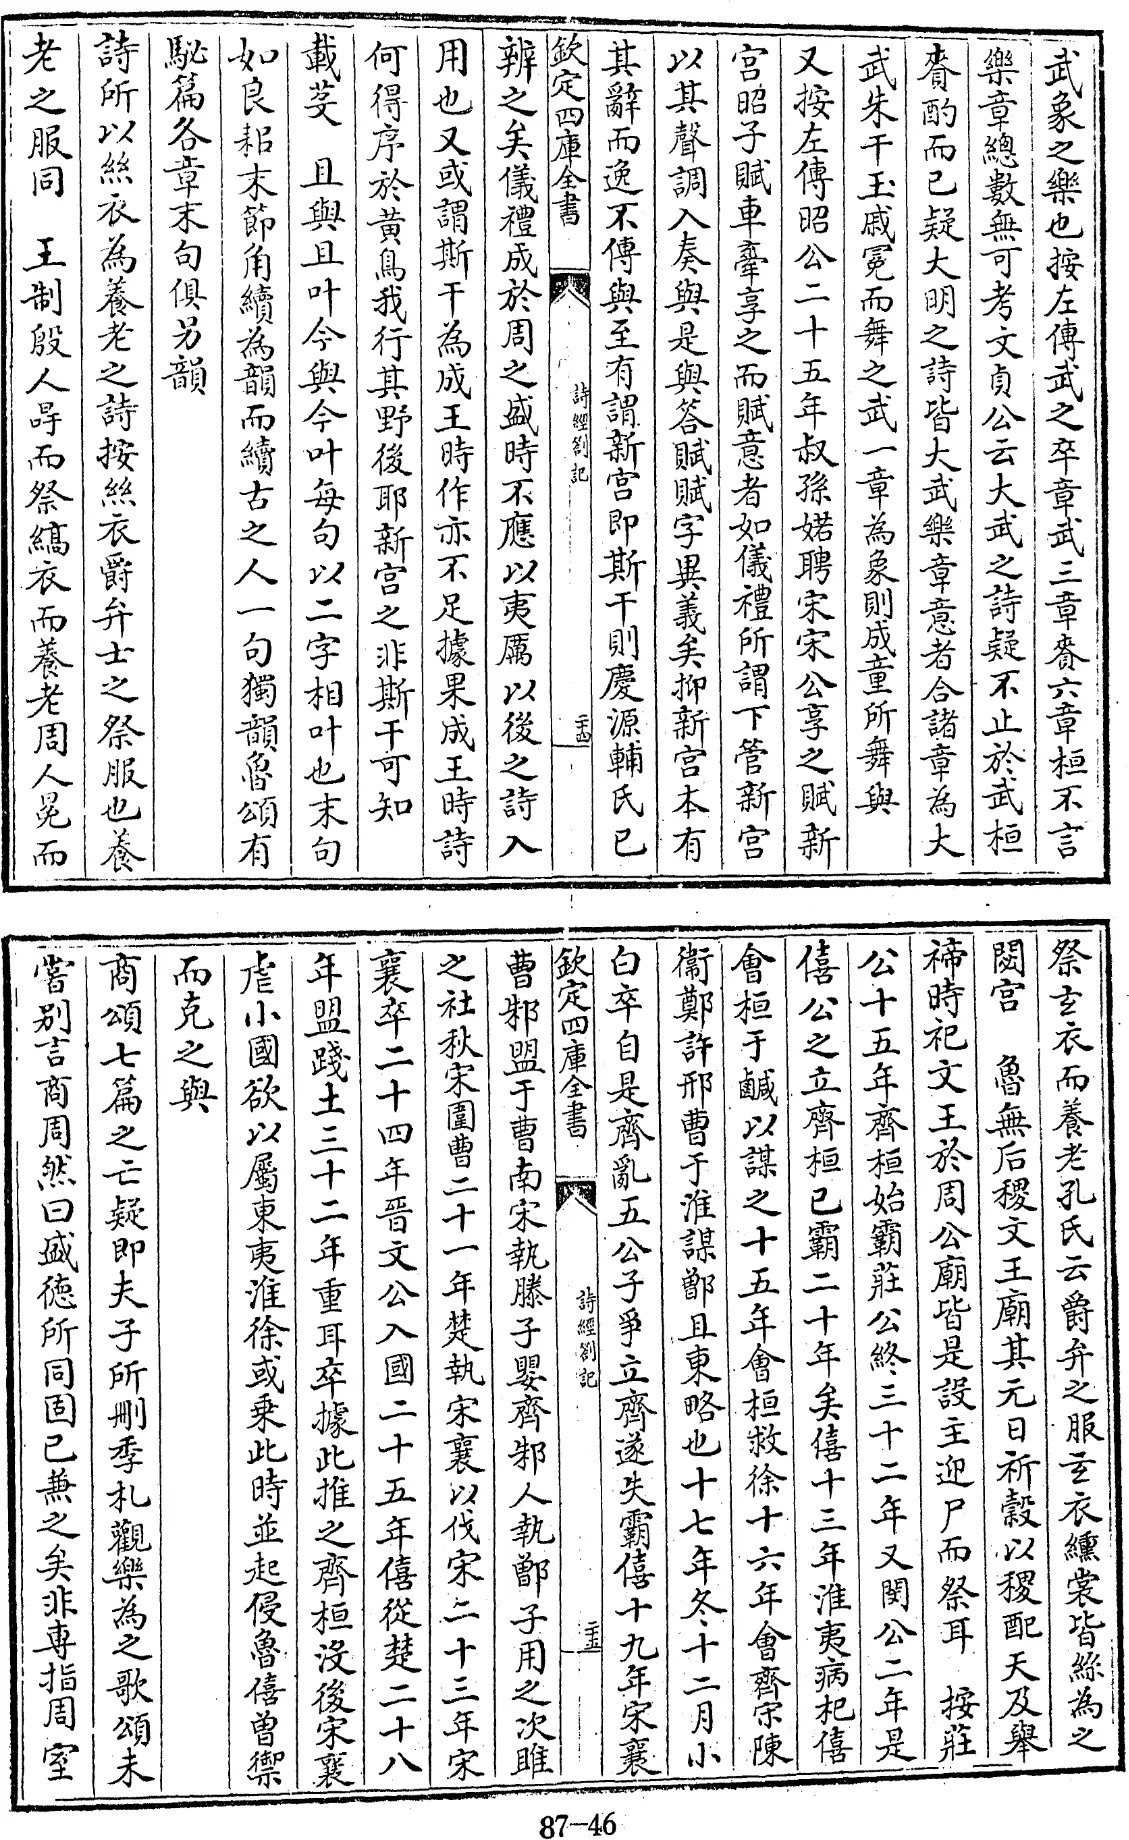 武象之樂也按左傳武之卒章武三章賚六章桓不言
樂章總數無可考文貞公云大武之詩疑不止於武桓
賚酌而已疑大明之詩皆大武樂章意者合諸章為大
武朱干玉戚冕而舞之武一章為象則成童所舞與
又按左傳昭公二十五年叔孫婼聘宋宋公享之賦新
宮昭子賦車舝享之而賦意者如儀禮所謂下管新宮
以其聲調入奏與是與答賦賦字異義矣抑新宮本有
其辭而逸不傳與至有謂新宮即斯干則慶源輔氏已
欽定四庫全書
詩經劄記
二十四
辨之矣儀禮成於周之盛時不應以夷厲以後之詩入
用也又或謂斯干為成王時作亦不足據果成王時詩
何得序於黃鳥我行其野後耶新宮之非斯干可知
載芟 且與且叶今與今叶每句以二字相叶也末句
如良耜末節角續為韻而續古之人一句獨韻魯頌有
駜篇各章末句俱另韻
詩所以絲衣為養老之詩按絲衣爵弁士之祭服也養
老之服同 王制殷人冔而祭縞衣而養老周人冕而
祭玄衣而養老孔氏云爵弁之服玄衣纁裳皆絲為之
閟宮 魯無后稷文王廟其元日祈穀以稷配天及舉
禘時祀文王於周公廟皆是設主迎尸而祭耳 按莊
公十五年齊桓始霸莊公終三十二年又閔公二年是
僖公之立齊桓已霸二十年矣僖十三年淮夷病杞僖
會桓于鹹以謀之十五年會桓救徐十六年會齊宋陳
衞鄭許邢曹于淮謀鄫且東略也十七年冬十二月小
白卒自是齊亂五公子爭立齊遂失霸僖十九年宋襄
欽定四庫全書
詩經劄記
二十五
曹邾盟于曹南宋執滕子嬰齊邾人執鄫子用之次睢
之社秋宋圍曹二十一年楚執宋襄以伐宋二十三年宋
襄卒二十四年晉文公入國二十五年僖從楚二十八
年盟踐土三十二年重耳卒據此推之齊桓沒後宋襄
虐小國欲以屬東夷淮徐或乘此時並起侵魯僖曾禦
而克之與
商頌七篇之亡疑即夫子所刪季札觀樂為之歌頌未
嘗別言商周然曰盛德所同固已兼之矣非專指周室
87-46